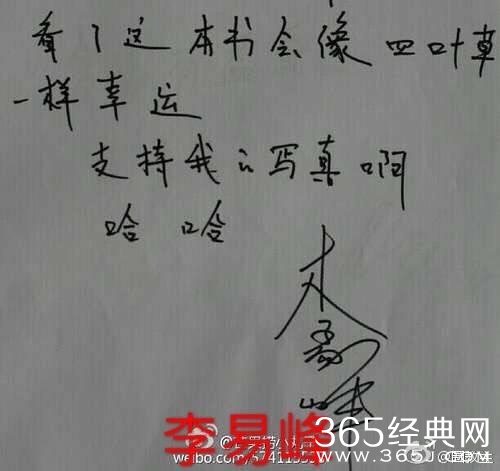 看了这本书会像四叶草
一样幸运
支持我的写真啊
哈哈
李易峰
李易峰
365经典网
www.365JD.COM